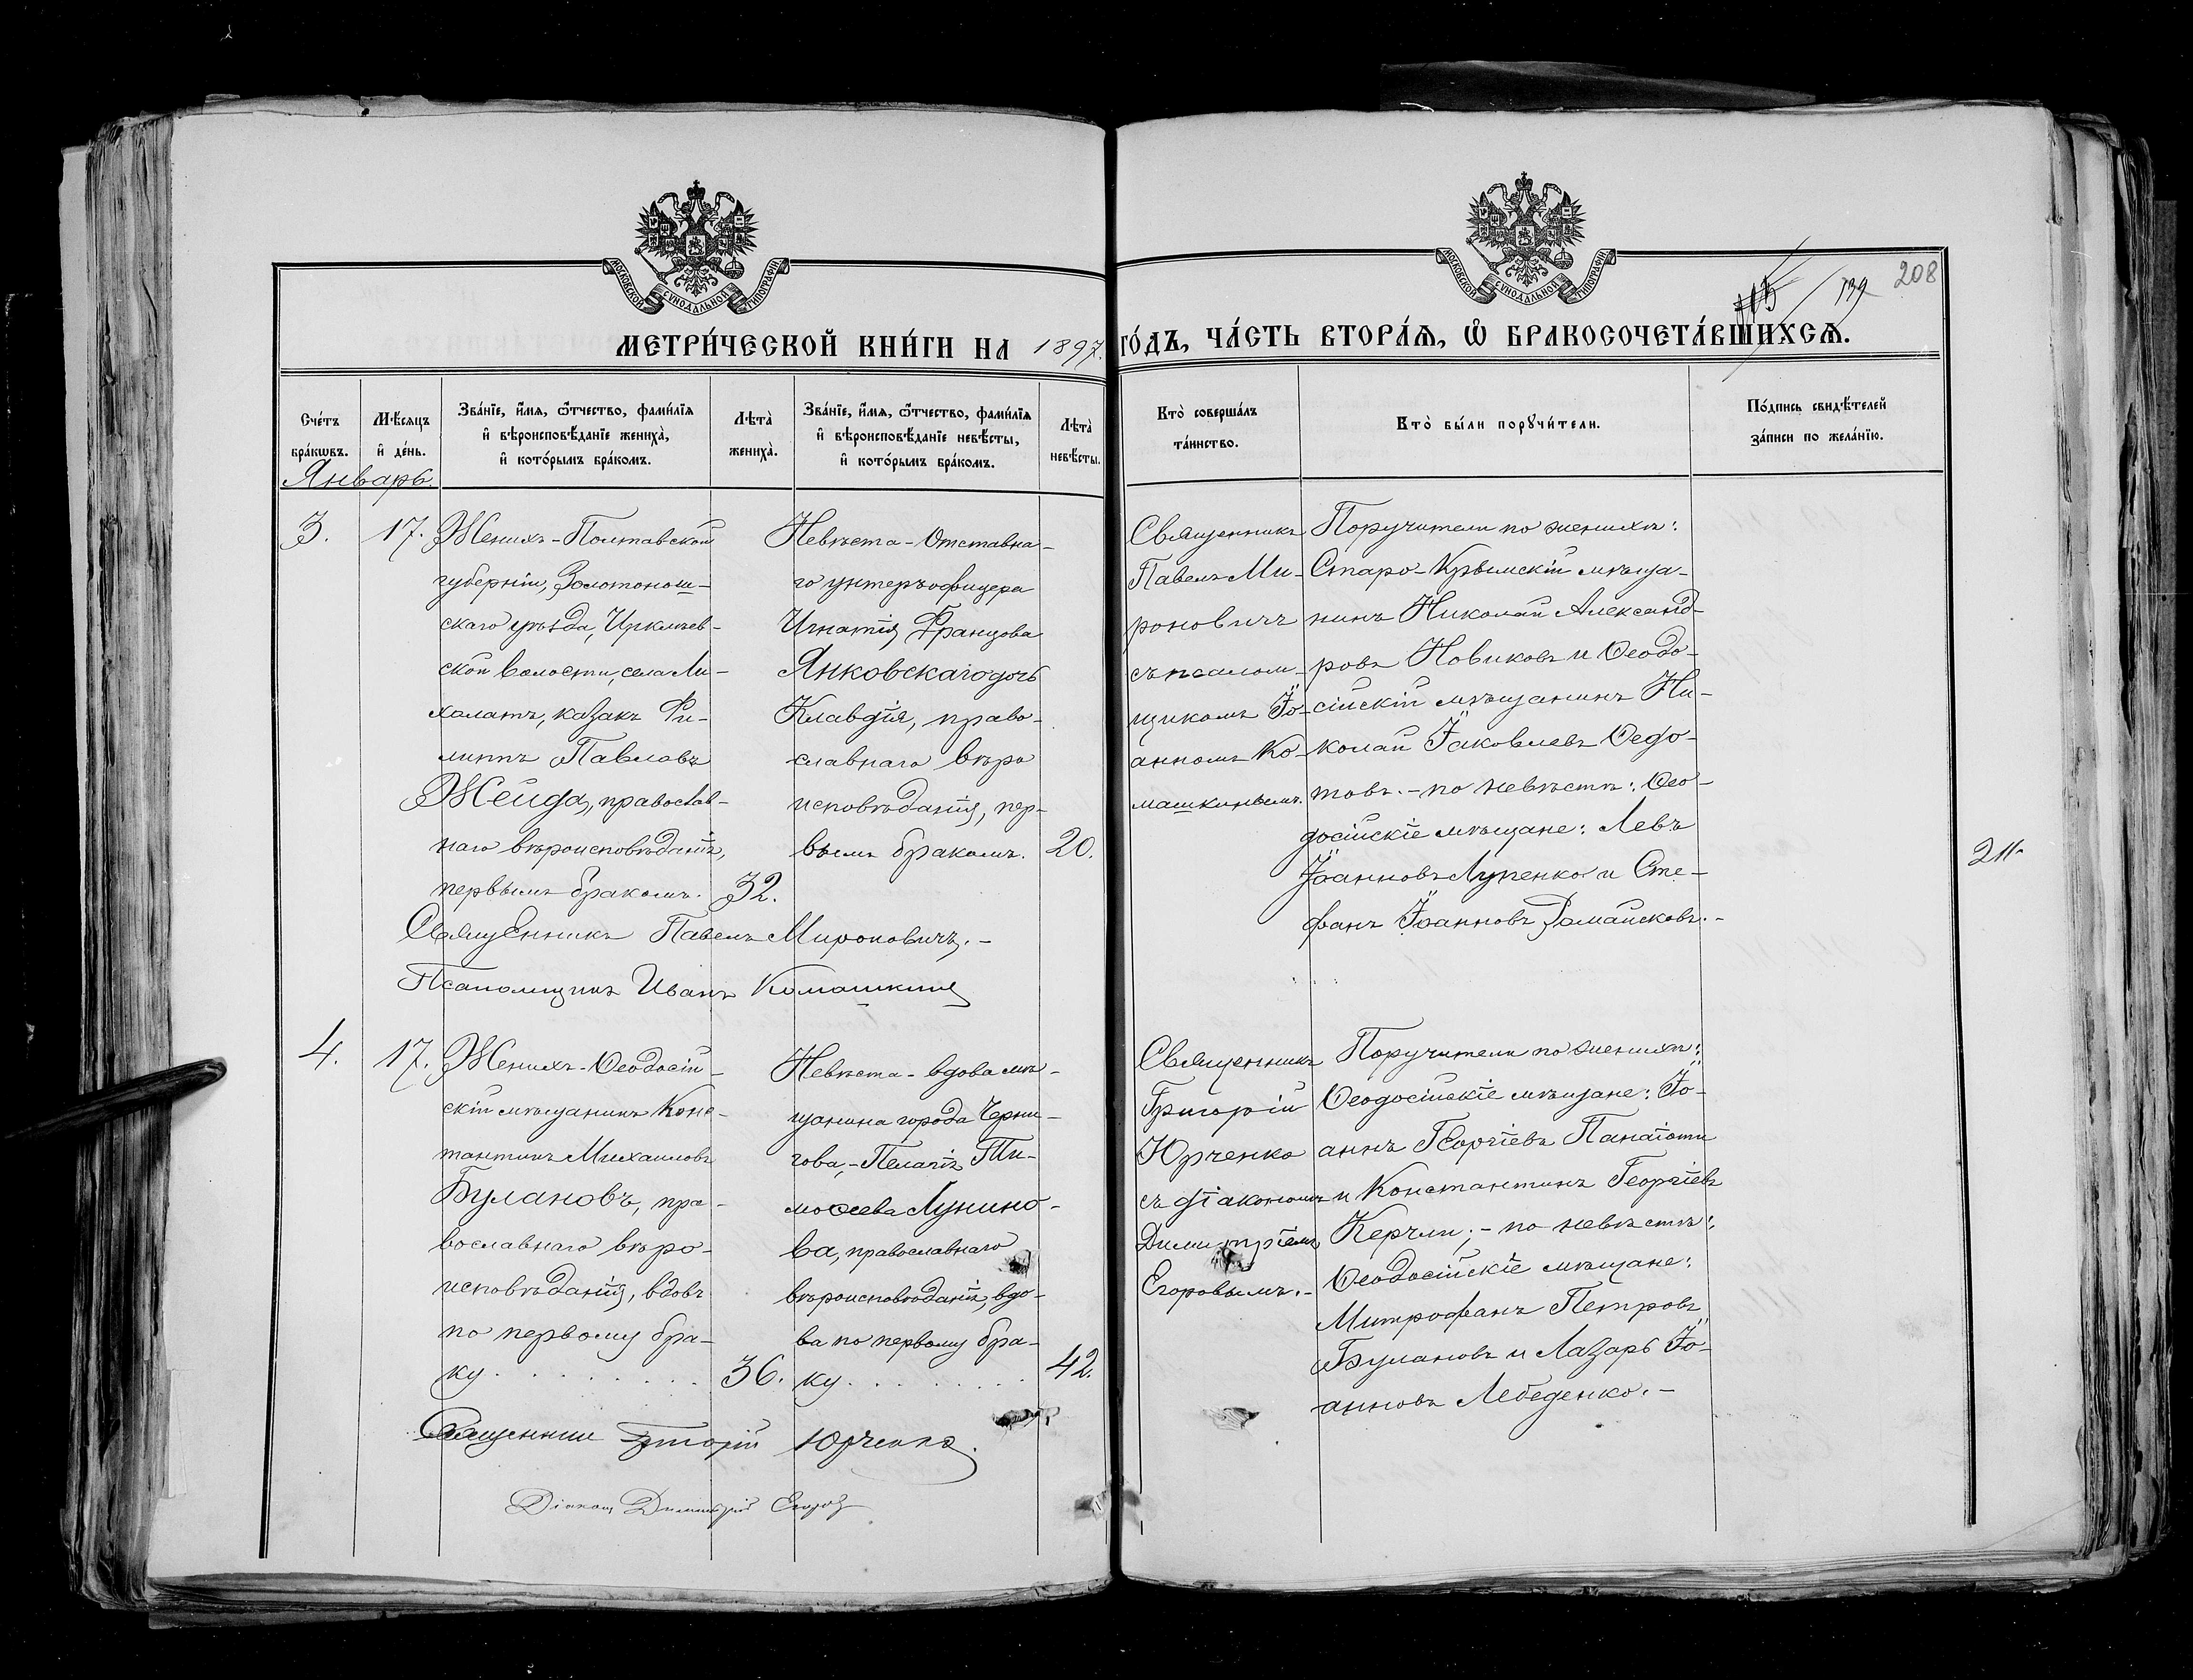 208
115 / 139
МОСКОВСКОЙ СѴНОДАЛЬНОЙ ТИПОГРАФІИ
МОСКОВСКОЙ СѴНОДАЛЬНОЙ ТИПОГРАФІИ
МЕТРИ́ЧЕСКОЙ КНИ́ГИ НА 1897. ГО́ДЪ, ЧА́СТЬ ВТОРА́Ѧ, Ѡ҆ БРАКОСОЧЕТА́ВШИХСѦ.
Сче́тъ бра́кѡвъ.
Мѣ́сѧцъ и҆ де́нь.
Зва́нїе, и҆́мѧ, ѻ҆́тчество, фами́лїѧ
и҆ вѣроисповѣ́данїе жениха̀,
и҆ кото́рымъ бра́комъ.
Лѣта̀ жениха̀.
Зва́нїе, и҆́мѧ, ѻ҆́тчество, фами́лїѧ
и҆ вѣроисповѣ́данїе невѣ́сты,
и҆ кото́рымъ бра́комъ.
Лѣта̀ невѣ́сты.
Кто̀ соверша́лъ
та́инство.
Кто̀ бы́ли порꙋчи́тели.
По́дпись свидѣ́телей
за́писи по жела́нїю.
Январь.
3.
17.
Женихъ - Полтавской
губерніи, Золотонош-
скаго уѣзда, Ирклѣев-
ской волости, села Ми-
халатъ, казакъ Фи-
липпъ Павловъ
Жейда, православ-
наго вѣроисповѣданія,
первымъ бракомъ.
32.
Невѣста - Отставна-
го унтеръофицера
Игнатія Францова
Янковскаго дочь
Клавдія, право-
славнаго вѣро
исповѣданія, пер-
вымъ бракомъ.
20.
Священникъ
Павелъ Ми-
роновичъ
съ псалом-
щикомъ Іо-
анномъ Ко-
машкинымъ.
Поручители по женихѣ:
Старо-Крымскій мѣща-
нинъ Николай Александ-
ровъ Новиковъ и Ѳеодо-
сійскій мѣщанинъ Ни-
колай Іаковлевъ Ѳедо-
товъ. - по невѣстѣ: Ѳео-
досійскіе мѣщане: Левъ
Іоанновъ Лупенко и Сте-
фанъ Іоанновъ Романсковъ. -
211.
Священникъ Павелъ Мироновичъ. -
Псаломщикъ Иванъ Комашкинъ
4.
17.
Женихъ - Ѳеодосій-
скій мѣщанинъ Конс-
тантинъ Михаиловъ
Булановъ, пра-
вославнаго вѣро-
исповѣданія, вдовъ
по первому бра-
ку . . . . . . . .
36.
Невѣста - вдова мѣ-
щанина города Черни-
гова, - Пелагія Ти-
моѳеева Лунино-
ва, православнаго
вѣроисповѣданія, вдо-
ва по первому бра-
ку . . . . . . .
42.
Священникъ
Григорій
Юрченко
съ діакономъ
Димитріемъ
Егоровымъ. -
Поручители по женихѣ:
Ѳеодосійскіе мѣщане: Іо-
аннъ Георгіевъ Панаіоти
и Константинъ Георгіевъ
Керчли; - по невѣстѣ:
Ѳеодосійскіе мѣщане:
Митрофанъ Петровъ
Булановъ и Лазарь Іо-
анновъ Лебеденко. -
Священник Григорій Юрченко.
Діаконъ Димитрій Егоров